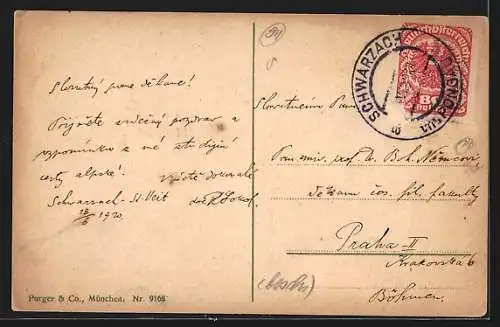 Slovutný pane děkane!
Přijměte srdečný pozdrav a
vzpomínku z mé studijní
cesty alpské!
Schwarzach-St. Veit
1920.
Purger & Co., München. Nr. 9168
SCHWARZACH
Deutschösterreich
80
Slovutnému Panu
Pan univ. prof. Dr. Boh. Němcovi
děkanu čes. fil. fakulty
Praha-II
Krakovská 6
Böhmen